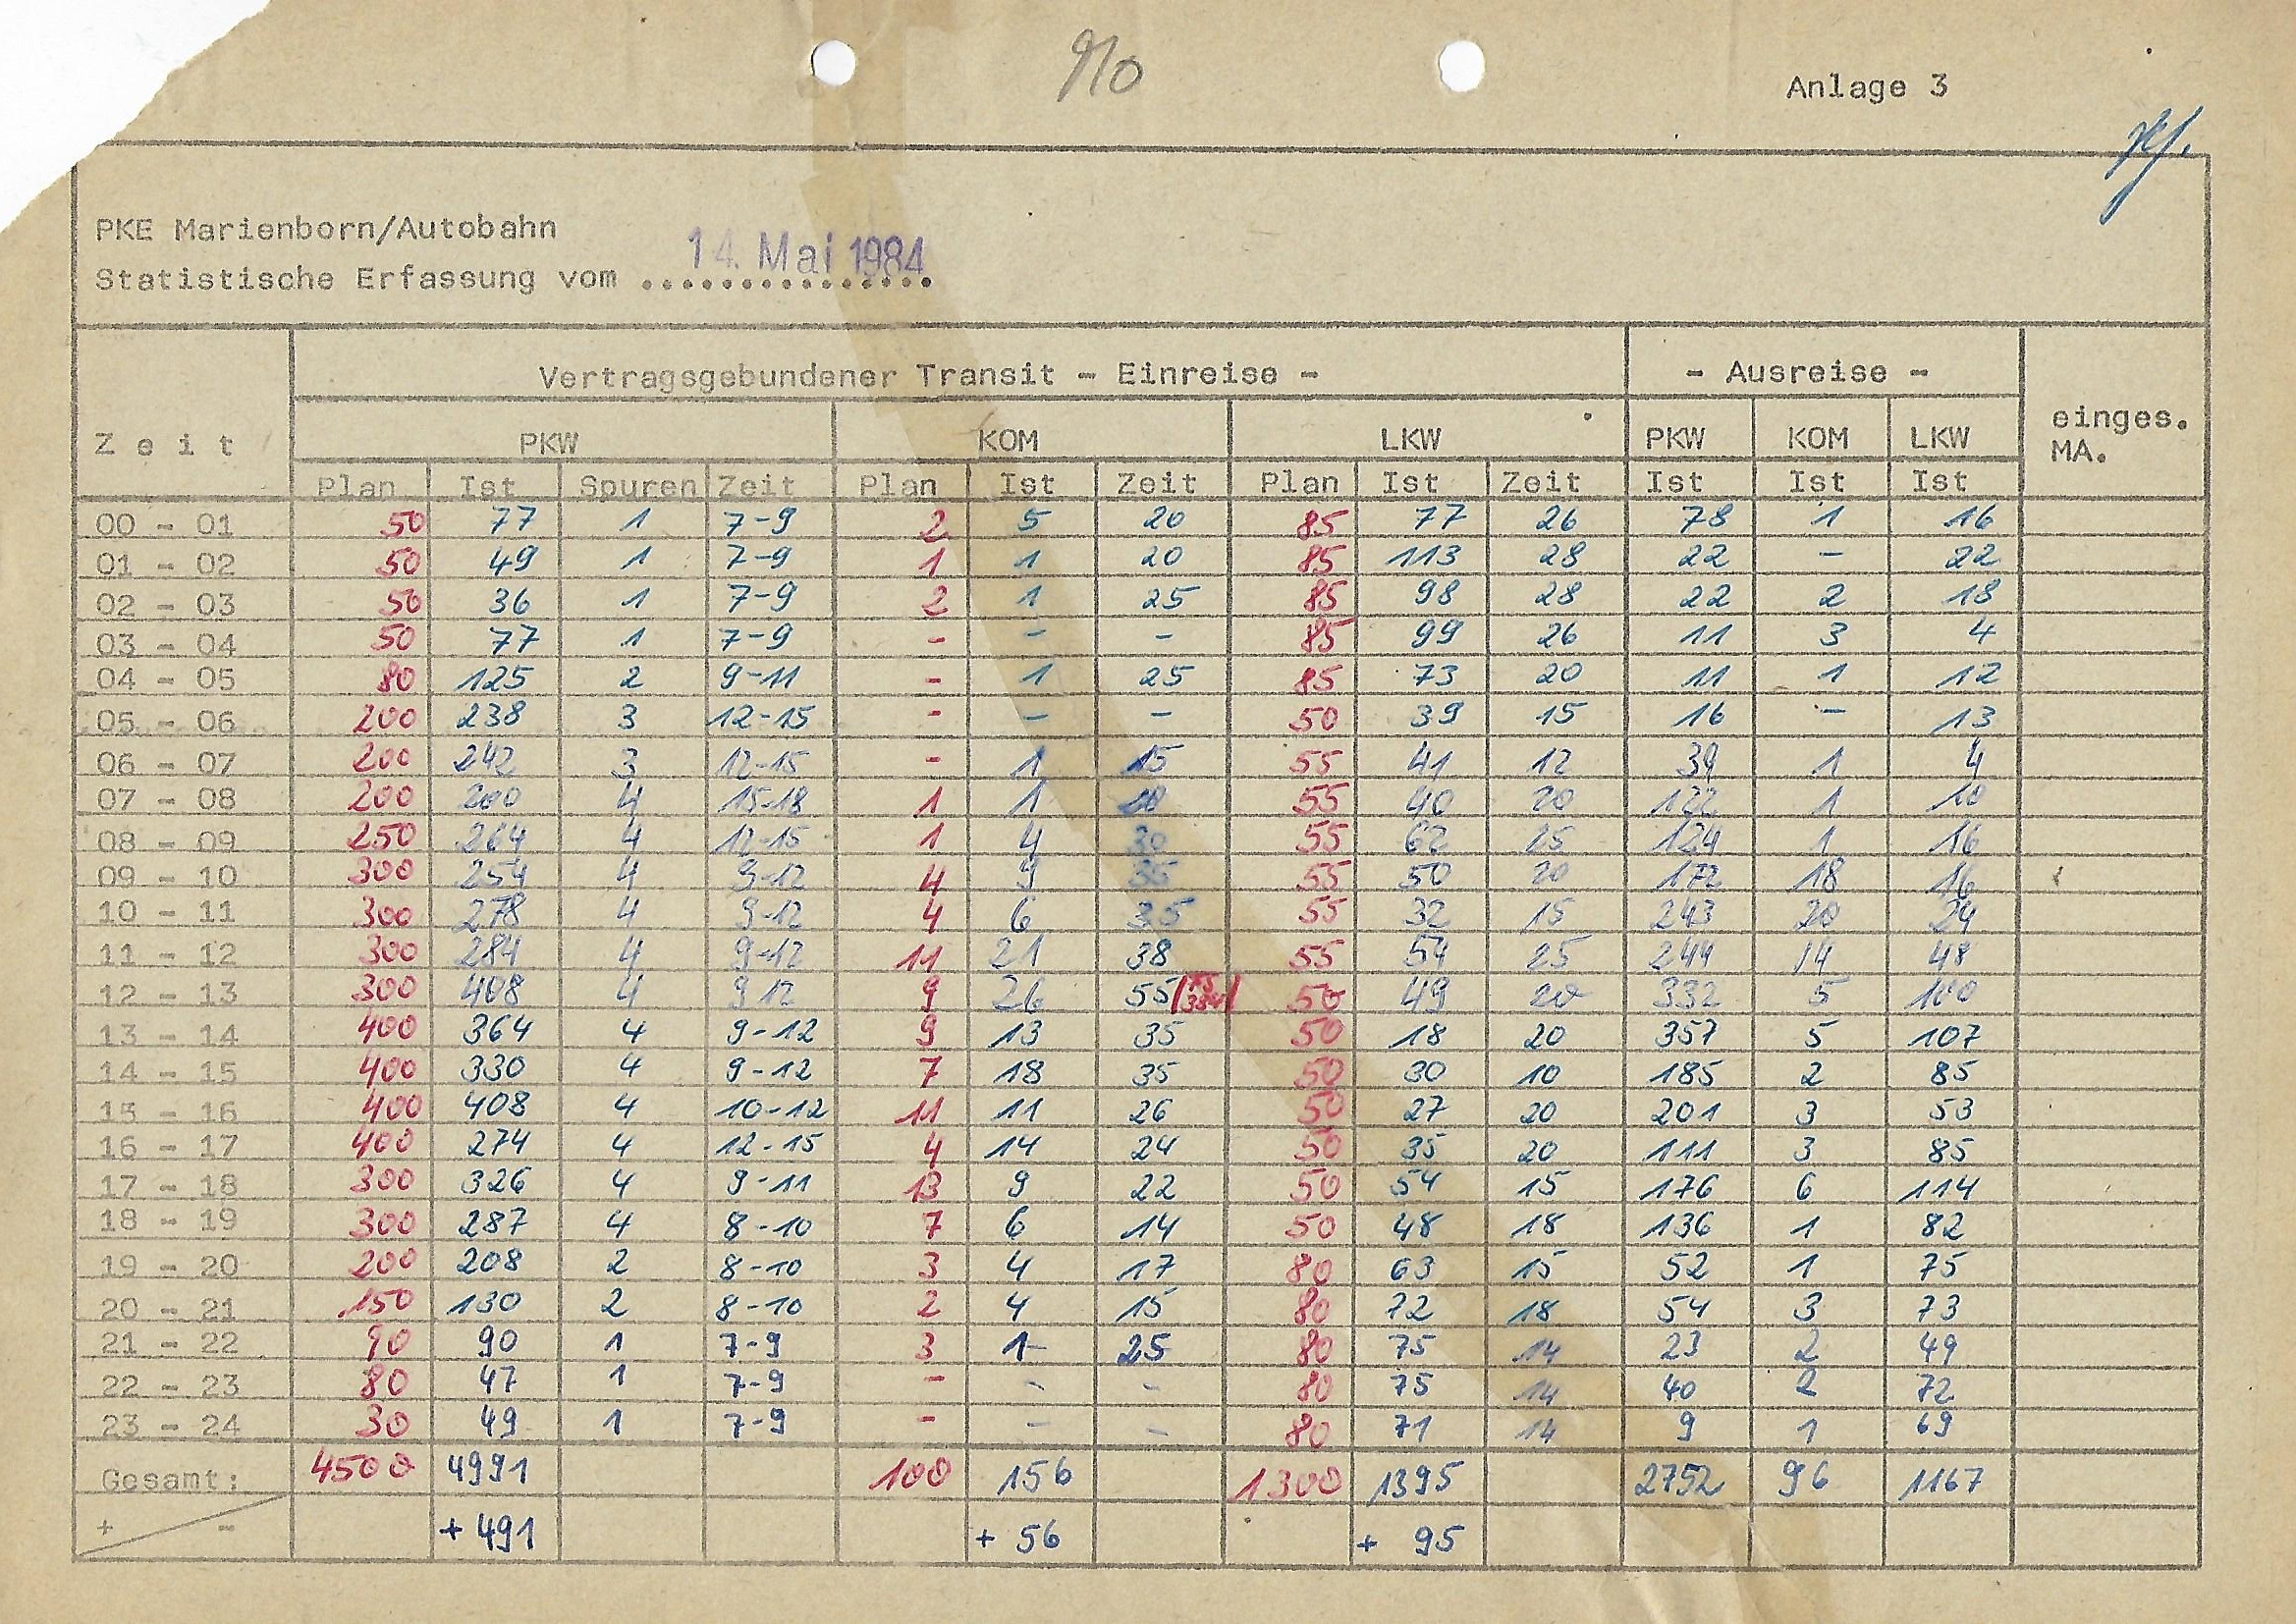 910
Anlage 3
PKE Marienborn/Autobahn
Statistische Erfassung vom 14. Mai 1984
Vertragsgebundener Transit - Einreise - - Ausreise -
Zeit PKW KOM LKW PKW KOM LKW einges. MA.
Plan Ist Spuren Zeit Plan Ist Zeit Plan Ist Zeit Ist Ist Ist
00 - 01 50 77 1 7-9 2 5 20 85 77 26 78 1 16
01 - 02 50 49 1 7-9 1 1 20 85 113 28 22 - 22
02 - 03 50 36 1 7-9 2 1 25 85 98 28 22 2 18
03 - 04 50 77 1 7-9 - - - 85 99 26 11 3 4
04 - 05 80 125 2 9-11 - 1 25 85 73 20 11 1 12
05 - 06 200 238 3 12-15 - - - 50 39 15 16 - 13
06 - 07 200 242 3 12-15 - 1 15 55 41 12 39 1 4
07 - 08 200 200 4 15-18 1 1 55 40 20 122 1 10
08 - 09 250 264 4 12-15 1 4 30 55 62 25 124 1 16
09 - 10 300 254 4 9-12 4 9 35 55 50 20 172 18 16
10 - 11 300 278 4 9-12 4 6 35 55 32 15 243 20 24
11 - 12 300 284 4 9-12 11 21 38 55 54 25 244 14 48
12 - 13 300 408 4 9 12 9 26 55 50 49 20 332 5 100
13 - 14 400 364 4 9-12 9 13 35 50 18 20 357 5 107
14 - 15 400 330 4 9-12 7 18 35 50 30 10 185 2 85
15 - 16 400 408 4 10-12 11 11 26 50 27 20 201 3 53
16 - 17 400 274 4 12-15 4 14 24 50 35 20 111 3 85
17 - 18 300 326 4 9-11 13 9 22 50 54 15 176 6 114
18 - 19 300 287 4 8-10 7 6 14 50 48 18 136 1 82
19 - 20 200 208 2 8-10 3 4 17 80 63 15 52 1 75
20 - 21 150 130 2 8-10 2 4 15 80 72 18 54 3 73
21 - 22 90 90 1 7-9 3 1 25 80 75 14 23 2 49
22 - 23 80 47 1 7-9 - - - 80 75 14 40 2 72
23 - 24 30 49 1 7-9 - - - 80 71 14 9 1 69
Gesamt: 4500 4991 100 156 1300 1395 2752 96 1167
+ - + 491 + 56 + 95